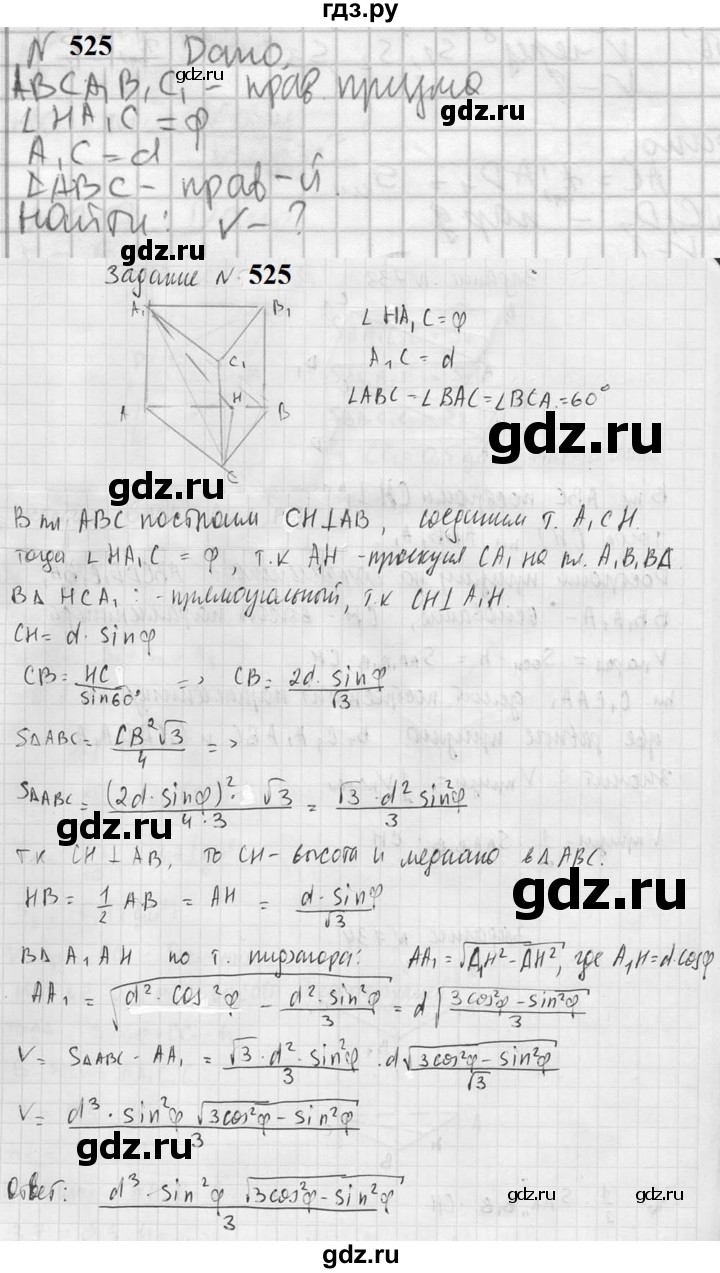 гдз.ру
N 525 Дано,
ABCA₁B₁C₁ - прав. призма
∠HA₁C = φ
A₁C = d
ΔABC - прав-й.
Найти: V - ?
Задание N 525
A₁ B₁
C₁
A H B
C
∠HA₁C = φ
A₁C = d
∠ABC = ∠BAC = ∠BCA = 60°
В пл ABC построим CH⊥AB, соединим т. A₁CH.
тогда ∠HA₁C = φ, т.к A₁H - проекция CA₁ на пл. A₁B₁BA
В Δ HCA₁: - прямоугольный, т.к CH⊥A₁H.
CH = d · sinφ
CB = HC/sin60° => CB = 2d · sinφ/√3
SΔABC = CB²√3/4 =>
SΔABC = (2d·sinφ)² · √3/4·3 = √3 · d² sin²φ/3
т.к CH⊥AB, то CH - высота и медиана в ΔABC:
HB = 1/2 AB = AH = d · sinφ/√3
В Δ A₁AH по т. пифагора: AA₁ = √A₁H² - AH², где A₁H = d·cosφ
AA₁ = √d² · cos²φ - d² · sin²φ/3 = d√3cos²φ - sin²φ/3
V = SΔABC · AA₁ = √3 · d² · sin²φ/3 · d√3cos²φ - sin²φ/√3
V = d³ · sin²φ √3cos²φ - sin²φ/3
Ответ: d³ · sin²φ √3cos²φ - sin²φ/3
gdz.ru
gdz.ru
gdz.ru
gdz.ru
gdz.ru
gdz.ru
gdz.ru
gdz.ru
gdz.ru
gdz.ru
gdz.ru
gdz.ru
gdz.ru
gdz.ru